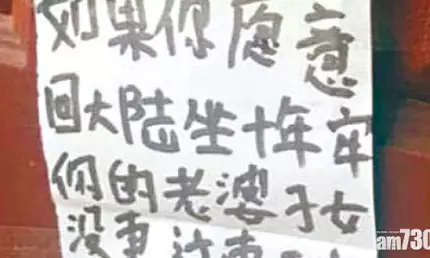 如果你愿意
回大陆坐十年牢
你的老婆子女
没事
am730